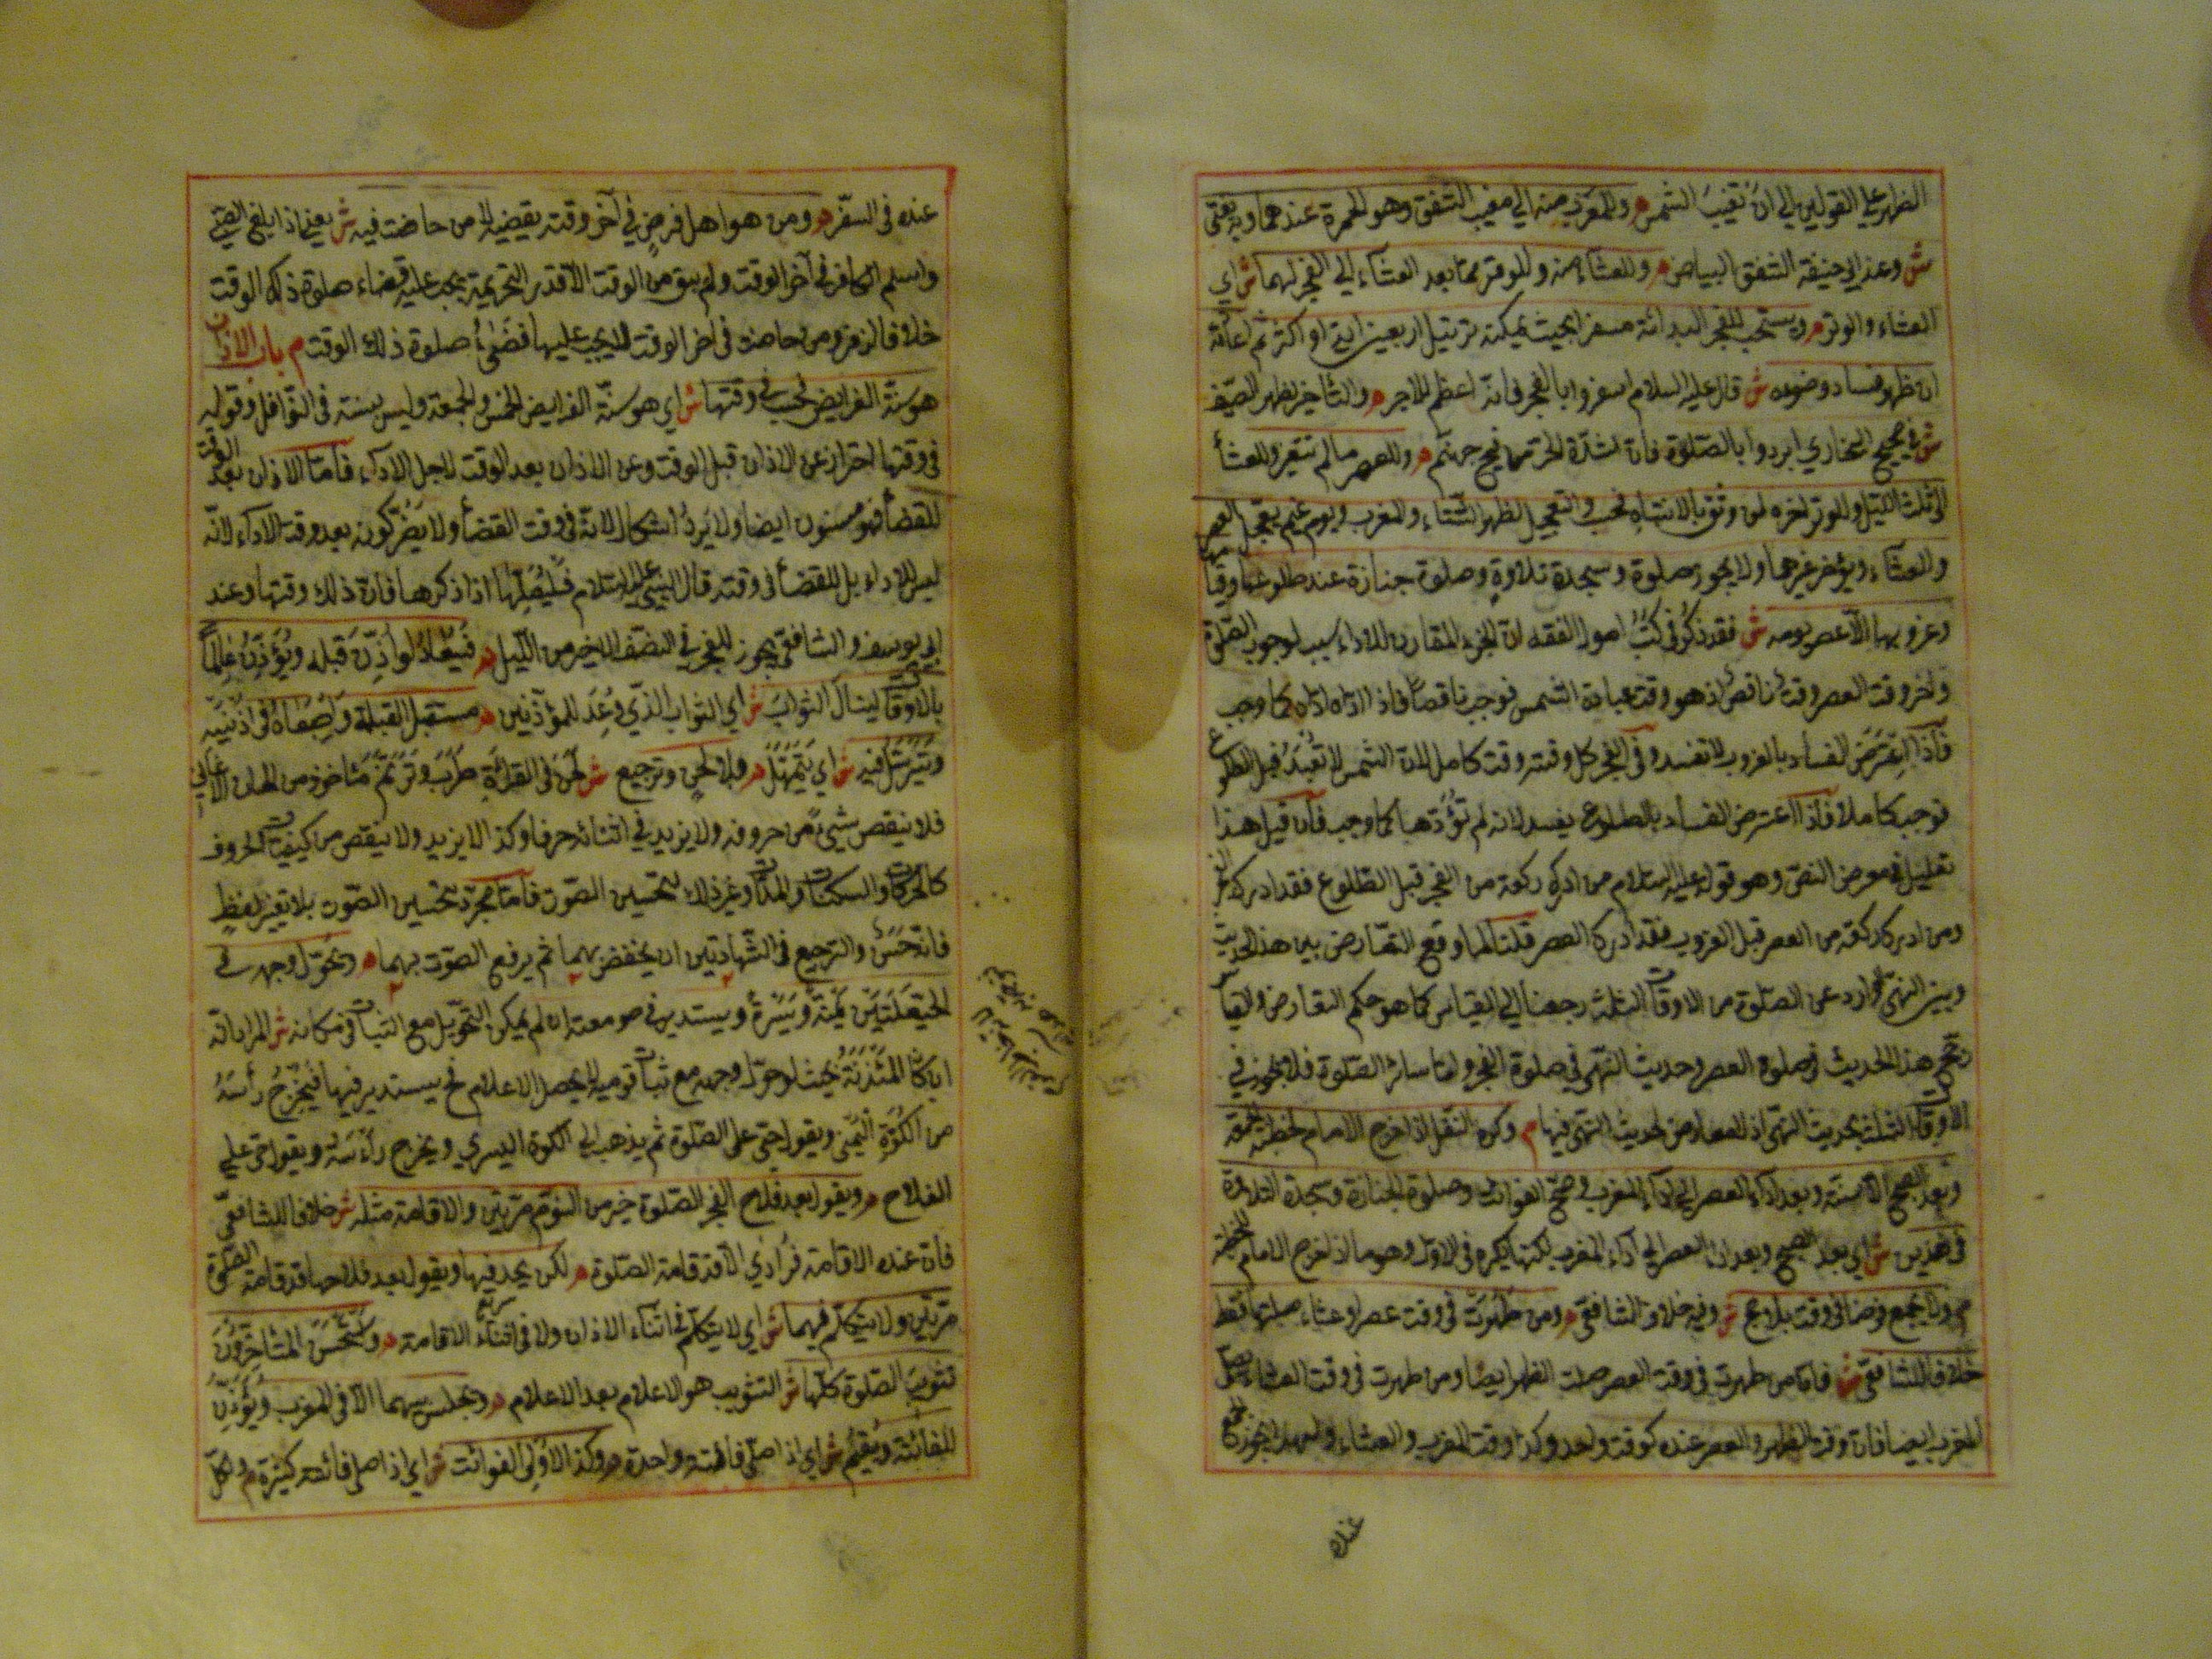 الظهر علي القولين الي ان تغيب الشمس م وللمغرب منه الي مغيب الشفق وهو للحمرة عندهما وبه يفتي
ش وعند ابي حنيفة الشفق البياض م وللعشاء منه وللوتر مما بعد العشاء الي الفجر لهما ش اي
العشاء والوتر م ويستحب للفجر البدائة مسفرا بحيث يمكنه ترتيل اربعين اية او اكثر ثم اعادته
ان ظهر فساد وضوءه ش قال عليه السلام اسفروا بالفجر فانه اعظم للاجر م والتأخير لظهر الصيف
ش في صحيح البخاري ابردوا بالصلوة فان شدة الحر من فيح جهنم م وللعصر ما لم تتغير وللعشأ
الي ثلث الليل وللوتر اخره لمن وثق بالانتباه فحسب والتعجيل لظهر الشتاء والمغرب ويوم غيم يعجل العصر
والعشاء ويؤخر غيرهما ولا يجوز صلوة وسجدة تلاوة وصلوة جنازة عند طلوعها وقيامها
وغروبها الا عصر يومه ش فقد ذكر في كتب اصول الفقه ان الجزء المقارن للاداء سبب لوجوب الصلوة
واخر وقت العصر وقت ناقص اذ هو وقت عبادة الشمس فوجب ناقصا فاذا اداه اداه كما وجب
فاذا اعترض الفساد بالغروب لا تفسد وفي الفجر كل وقته وقت كامل لان الشمس لا تعبد قبل الطلوع
فوجب كاملا فاذا اعترض الفساد بالطلوع يفسد لانه لم تؤدها كما وجب فان قيل هذا
تعليل في معرض النص وهو قوله عليه السلام من ادرك ركعة من الفجر قبل الطلوع فقد ادرك الفجر
ومن ادرك ركعة من العصر قبل الغروب فقد ادرك العصر قلنا لما وقع التعارض بين هذا الحديث
وبين النهي الوارد عن الصلوة من الاوقات الثلثة رجعنا الي القياس كما هو حكم التعارض والقياس
رجح هذا الحديث في صلوة العصر وحديث النهي في صلوة الفجر واما سائر الصلوة فلا يجوز في
الاوقات الثلثة بحديث النهي اذ لا معارض لحديث النهي فيها م وكره النفل اذا خرج الامام لخطبة الجمعة
وبعد الصبح الا سنته وبعد اداء العصر الي اداء المغرب وصح الفوائت وصلوة الجنازة وسجدة التلاوة
في هذين ش اي بعد الصبح وبعد اداء العصر الي اداء المغرب لكنها يكره في الاول وهو ما اذا خرج الامام للخطبة
م ولا يجمع فرضان في وقت بلا حج ش وفيه خلاف الشافعي م ومن طهرت في وقت عصر او عشاء صلتها فقط
خلافا للشافعي ش فان من طهرت في وقت العصر صلت الظهر ايضا ومن طهرت في وقت العشاء تصلي
المغرب ايضا فان وقت الظهر والعصر عنده كوقت واحد وكذا وقت المغرب والعشاء ولهذا يجوز الجمع
عنده
عنده في السفر م ومن هو اهل فرض في آخر وقته يقضيه لا من حاضت فيه ش يعني اذا بلغ الصبي
واسلم الكافر في آخر الوقت ولم يبق من الوقت الا قدر التحريمة يجب عليه قضاء صلوة ذلك الوقت
خلافا لزفر ومن حاضت في اخر الوقت لا يجب عليها قضاء صلوة ذلك الوقت م باب الاذان
هو سنة الفرايض فحسب في وقتها ش اي هو سنة الفرايض الخمس والجمعة وليس بسنة في النوافل وقوله
في وقتها احتراز عن الاذان قبل الوقت وعن الاذان بعد الوقت لاجل الاداء فاما الاذان بعد الوقت
للقضأ فهو مسنون ايضا ولا يرد اشكال لانه في وقت القضأ ولا يضر كونه بعد وقت الاداء لانه
ليس للاداء بل للقضأ في وقته قال النبي عليه السلام فليصلها اذا ذكرها فان ذلك وقتها وعند
ابي يوسف والشافعي يجوز للفجر في النصف الاخير من الليل م فيعاد لو اذن قبله ويؤذن عالما
بالاوقات لينال الثواب ش اي الثواب الذي وعد للمؤذنين م مستقبل القبلة واصبعاه في اذنيه
ويترسل فيه ش اي يتمهل م بلا لحن وترجيع ش لحن في القراءة طرب وترنم مأخوذ من الحان الاغاني
فلا ينقص شئ من حروفه ولا يزيد في اثنائه حرفا وكذا لا يزيد ولا ينقص من كيفيات الحروف
كالحركات والسكنات والمدات وغير ذلك لتحسين الصوت فاما مجرد تحسين الصوت بلا تغير لفظ
فانه حسن والترجيع في الشهادتين ان يخفض بهما ثم يرفع الصوت بهما م ويحول وجهه في
الحيعلتين يمنة ويسرة ويستدير في صومعته ان لم يمكن التحويل مع الثبات في مكانه ش المراد انه
اذا كان المئذنة بحيث لو حول وجهه مع ثبات قدميه لا يحصل الاعلام فح يستدير فيها فيخرج رأسه
من الكوة اليمني ويقول حي علي الصلوة ثم يذهب الي الكوة اليسري ويخرج رأسه ويقول حي علي
الفلاح م ويقول بعد فلاح الفجر الصلوة خير من النوم مرتين والاقامة مثله ش خلافا للشافعي
فان عنده الاقامة فرادي الا قد قامت الصلوة م لكن يحدر فيها ويقول بعد فلاحها قد قامت الصلوة
مرتين ولا يتكلم فيهما ش اي لا يتكلم في اثناء الاذان ولا في اثناء الاقامة م واستحسن المتأخرون
تثويب الصلوة كلها ش التثويب هو الاعلام بعد الاعلام م ويجلس بينهما الا في المغرب ويؤذن
للفائتة ويقيم ش اي اذا صلي فائتة واحدة م وكذا الاولي الفوائت ش اي اذا صلي فائتة كثيرة م ولكل